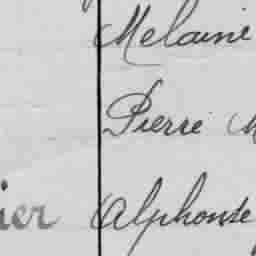 Melaine
Pierre M
ier Alphonse